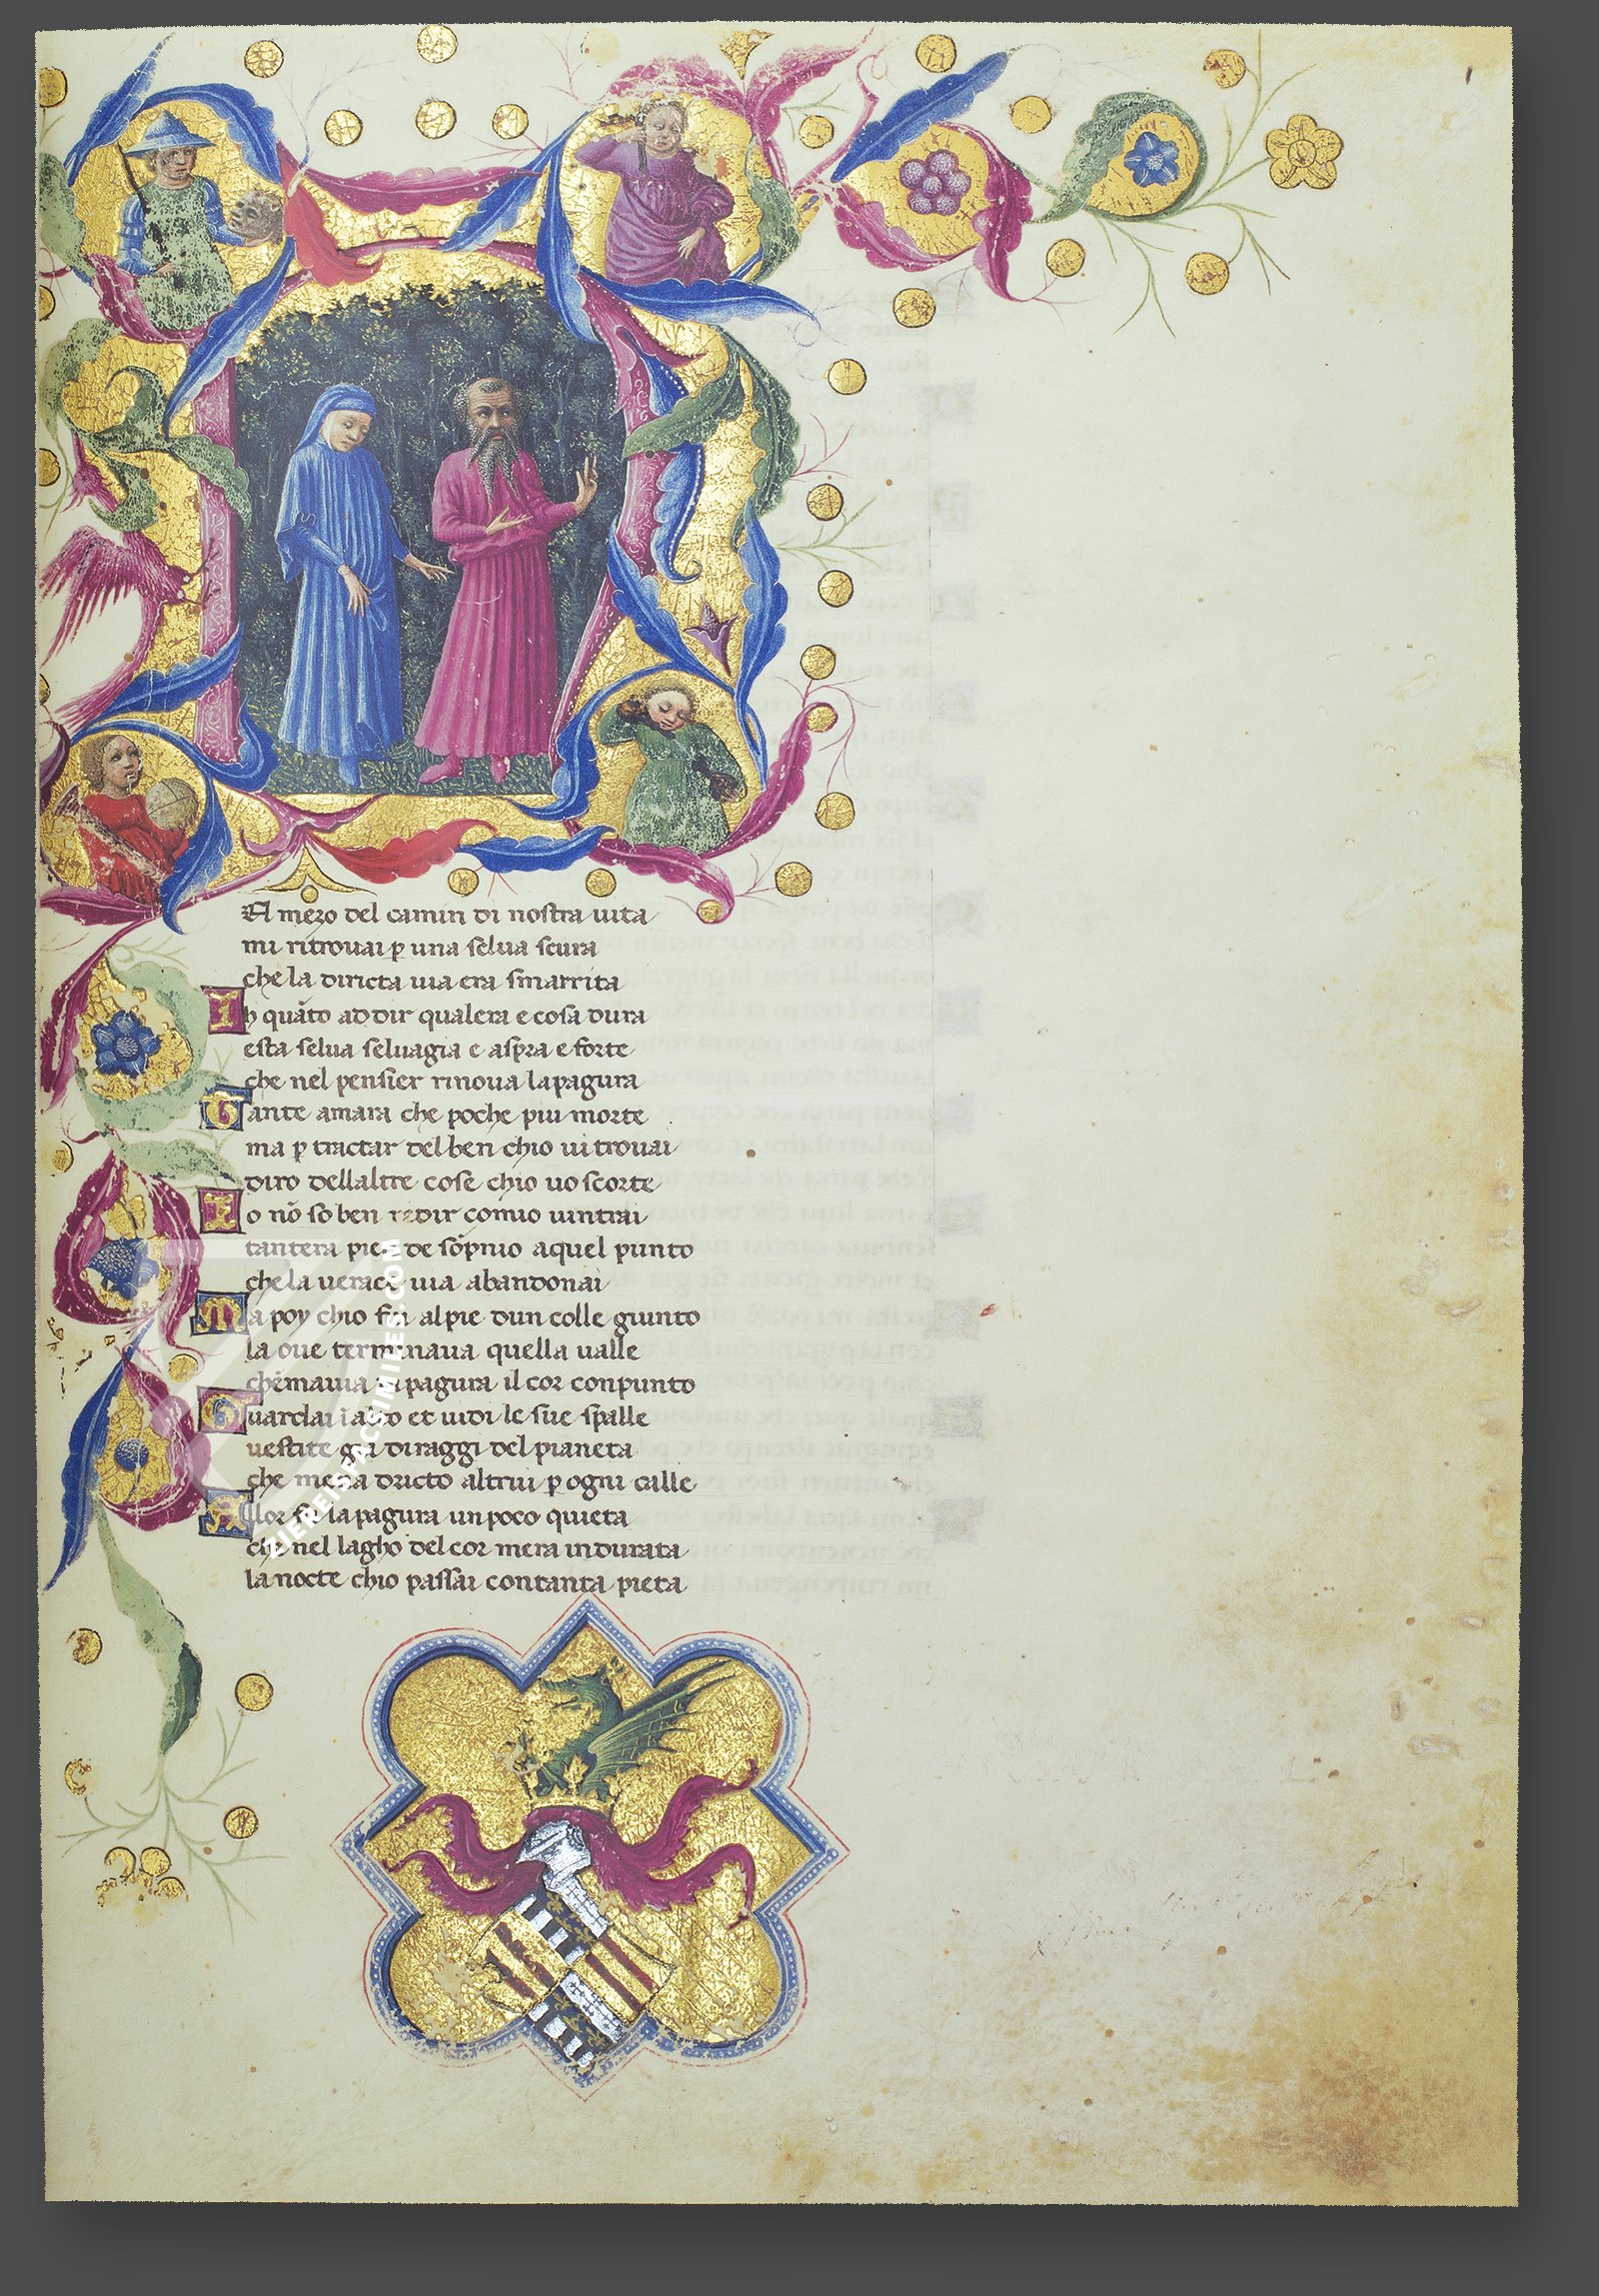 El mezo del camin di nostra uita
mi ritrouai ꝑ una selua scura
che la diricta uia era smarrita
Ih quāto ad dir qualera e cosa dura
esta selua seluagia e aspra e forte
che nel pensier rinoua la pagura
Tante amara che poche piu morte
ma ꝑ tractar del ben chio ui trouai
diro dellaltre cose chio uo scorte
I o nō so ben redir como uintrai
tantera pien de sōpnio aquel punto
che la uerace uia abandonai
Ma poy chio fui al pie dun colle giunto
la oue terminaua quella ualle
chemauia di pagura il cor conpunto
Guardai ī alto et uidi le sue spalle
uestite gia di raggi del pianeta
che mena dricto altrui ꝑ ogni calle
Allor fu la pagura un poco quieta
che nel lagho del cor mera indurata
la nocte chio passai con tanta pieta
ZIEREIS FACSIMILES.COM